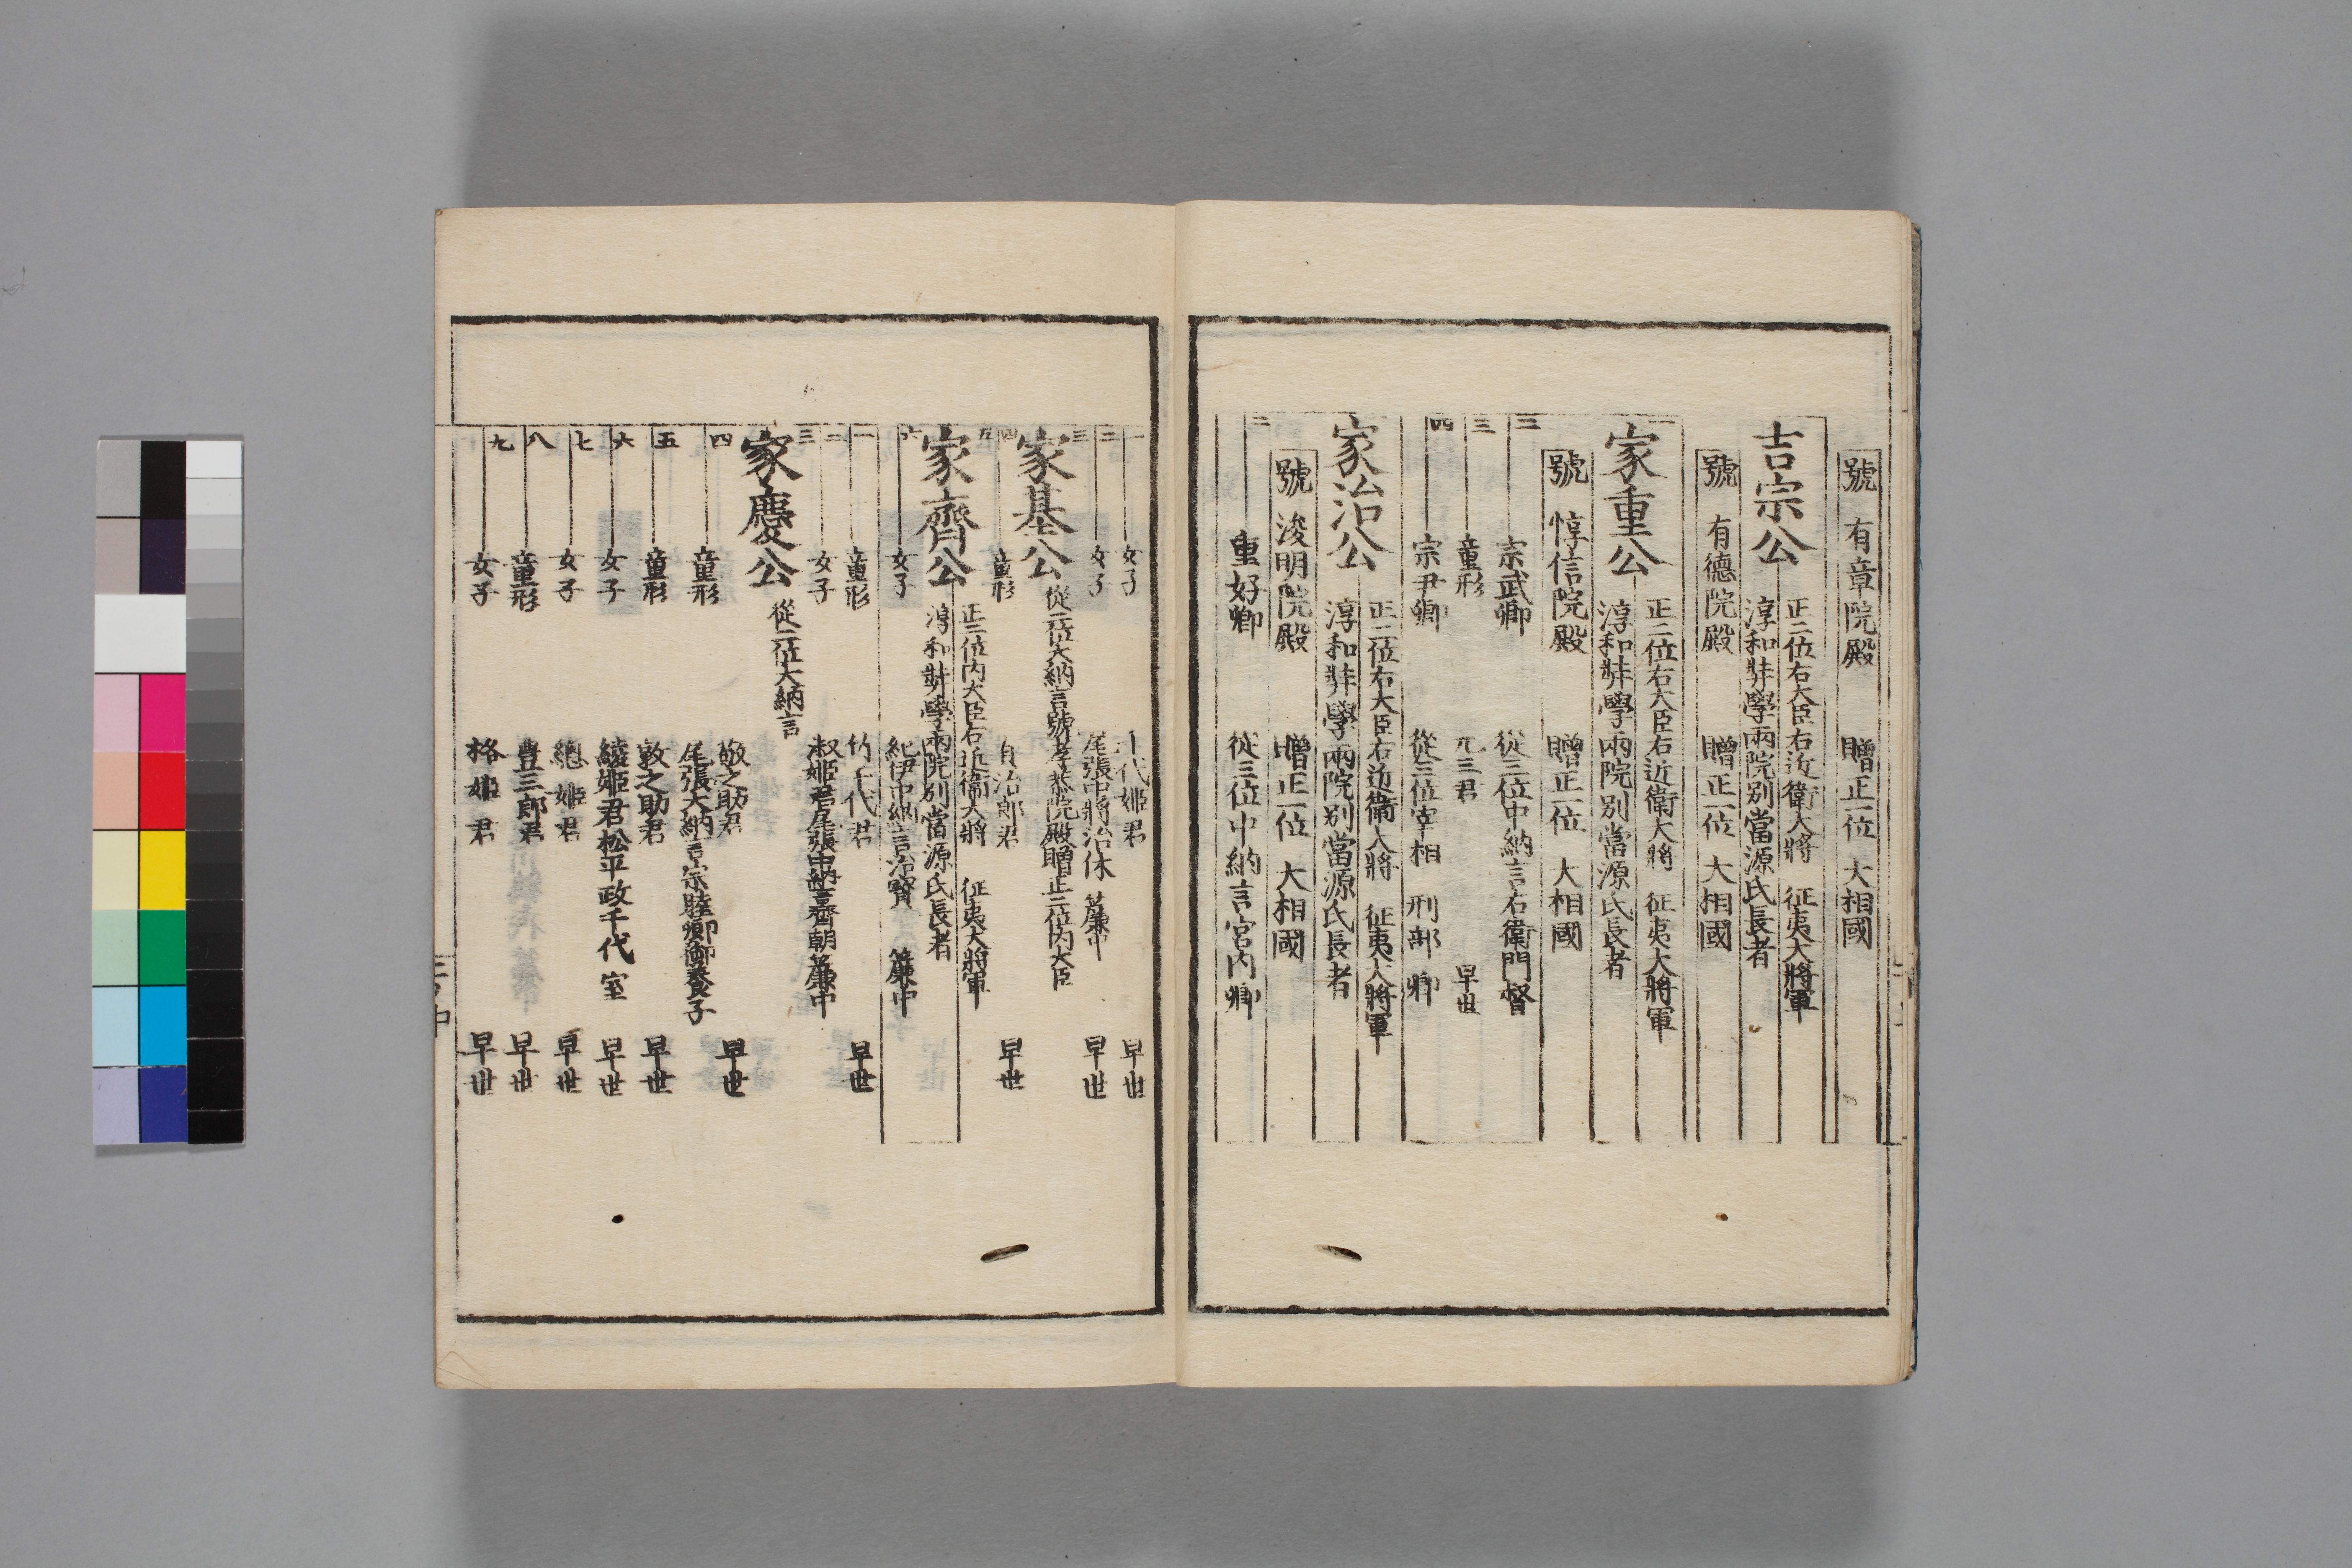 號 有章院殿 贈正一位 大相國
吉宗公
正二位右大臣右近衛大將 征夷大將軍
淳和奘學兩院別當源氏長者
號 有德院殿 贈正一位 大相國
一
家重公
正二位右大臣右近衛大將 征夷大將軍
淳和奘學兩院別當源氏長者
號 惇信院殿 贈正一位 大相國
二 宗武卿 從三位中納言右衛門督
三 童形 元三君 早世
四 宗尹卿 從三位宰相 刑部卿
家治公
正二位右大臣右近衛大將 征夷大將軍
淳和奘學兩院別當源氏長者
號 浚明院殿 贈正一位 大相國
二 重好卿 從三位中納言宮内卿
一 女子 千代姬君 早世
二 女子 尾張中將治休 簾中 早世
三
家基公
從二位大納言號孝恭院殿贈正二位内大臣
四 童形 貞治郎君 早世
五
家齊公
正二位内大臣右近衛大將 征夷大將軍
淳和奘學兩院別當源氏長者
六 女子 紀伊中納言治寶 簾中
一 童形 竹千代君 早世
二 女子 淑姬君尾張中納言齊朝簾中
三
家慶公
從二位大納言
四 童形 敬之助君 早世
尾張大納言宗睦卿御養子
五 童形 敦之助君 早世
六 女子 綾姬君松平政千代室 早世
七 女子 總姬君 早世
八 童形 豊三郎君 早世
九 女子 格姬君 早世